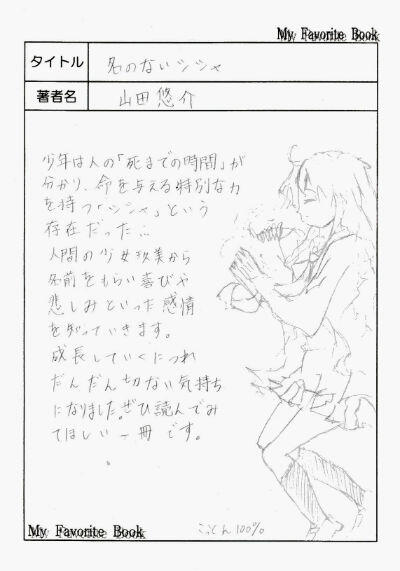 My Favorite Book
タイトル 名のないシシャ
著者名 山田悠介
少年は人の「死までの時間」が
分かり、命を与える特別な力
を持つ「シシャ」という
存在だった…
人間の少女玖美から
名前をもらい喜びや
悲しみといった感情
を知っていきます。
成長していくにつれ
だんだん切ない気持ち
になりました。ぜひ読んでみ
てほしい一冊です。
My Favorite Book
こっとん100%